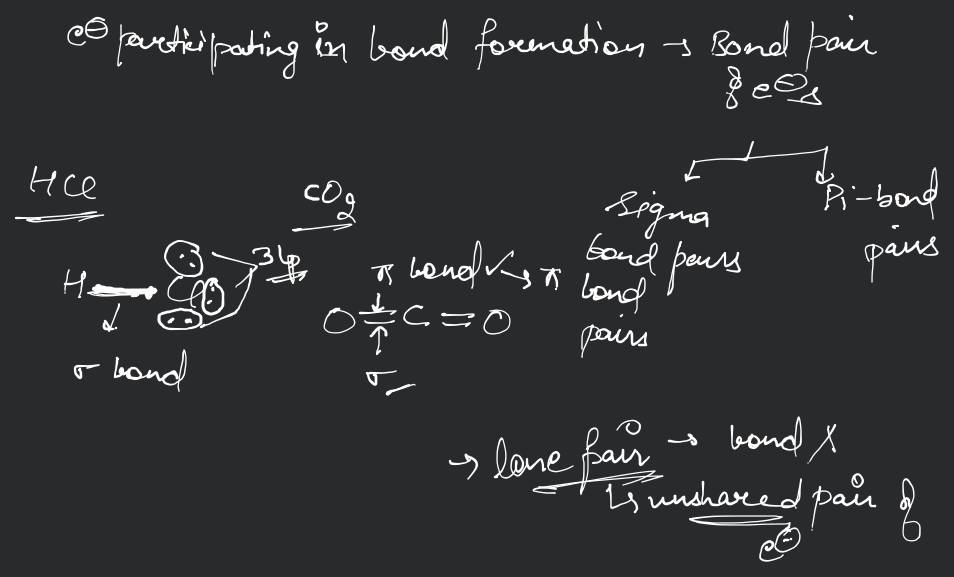 e⊖ participating in bond formation → Bond pair
of e⊖s
HCl
CO2
Sigma
bond pairs
Pi-bond
pairs
3lp
H
Cl
σ bond
π bond ✓→ π
bond
pairs
O=C=O
σ
→ lone pair → bond X
↳ unshared pair of
e⊖